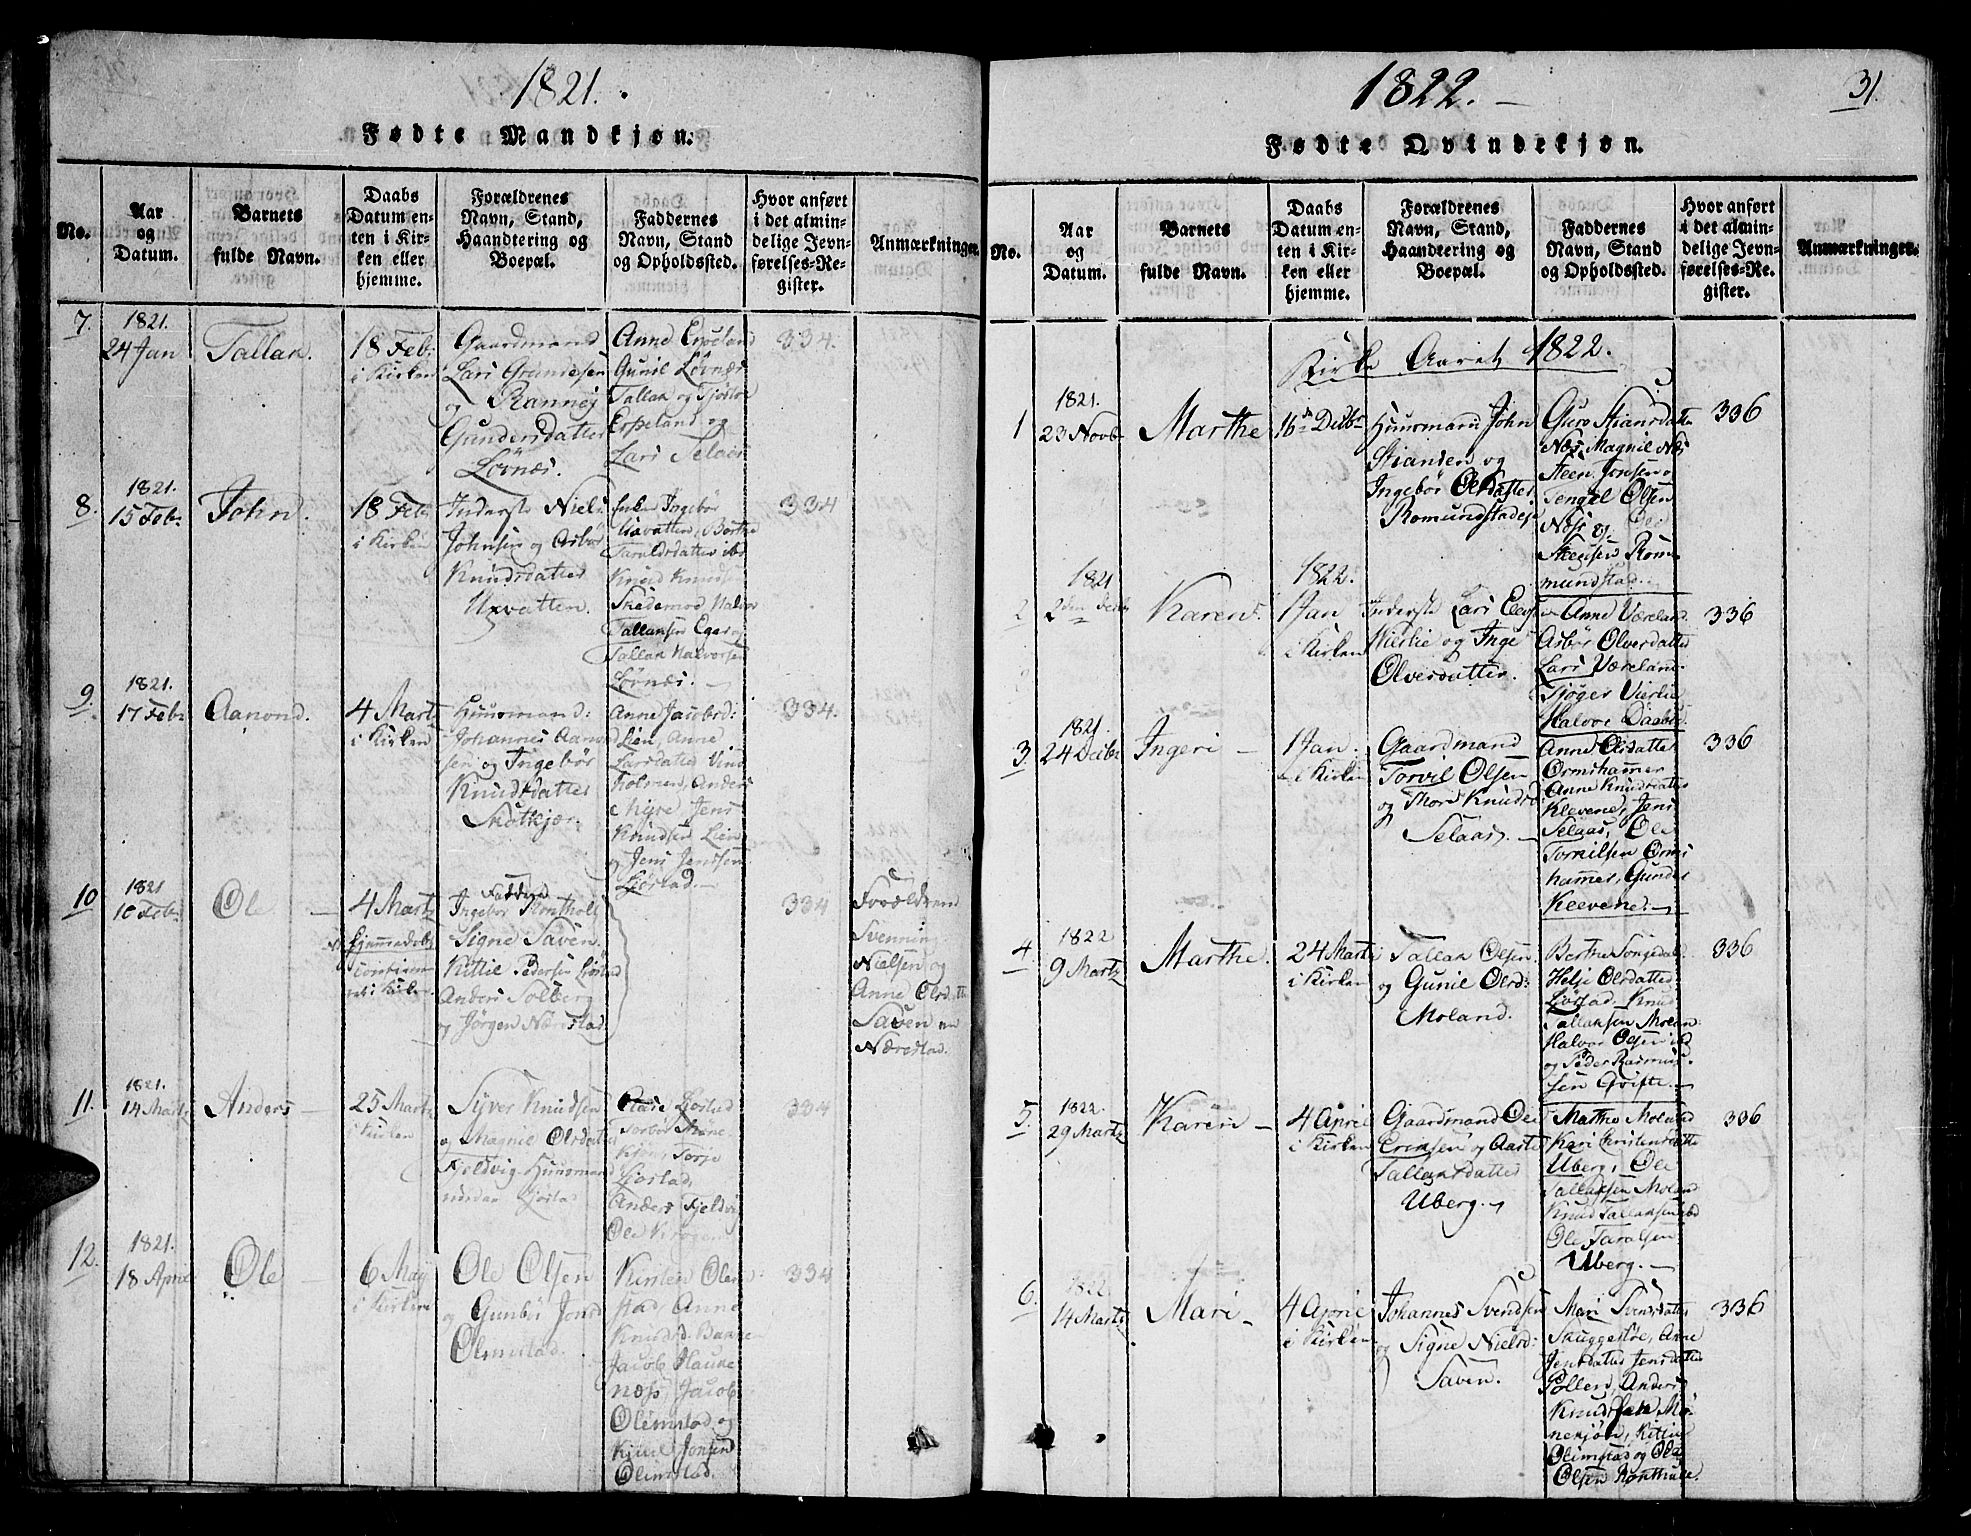 1821.
Fødte Mandkjøn.
No.
Aar
og
Datum.
Barnets
fulde Navn.
Daabs
Datum en-
ten i Kir-
ken eller
hjemme.
Forældrenes
Navn, Stand,
Haandtering og
Boepæl.
Faddernes
Navn, Stand
og Opholdssted.
Hvor anført
i det almin-
delige Jevn-
førelses-Re-
gister.
Anmærkninger.
7.
1821.
24 Jan
Tallak.
18 Feb:
i Kirken
Gaardmand
Lars
og
Gundersdatter
Løvnæs.
Anne Espeland
Gunil Løvnæs
Tallak og
Espeland og
Lars Selaas
334.
8.
1821.
15 Febr
John.
18 Feb
i Kirken
Inderste Niels
Johnsen og Asbør
Knudsdatter
Uxvatten.
Enke Ingebør
Uxvatten, Berthe
Taraldsdatter ibd
Knud Knudsen
Skedemod, Halvor
Tallaksen Eger og
Tallak Halvorsen
Løvnæs.
334
9.
1821.
17 Febr
Aanond.
4 Martz
i Kirken
Huusmand:
Johannes Aanond
sen og Ingebør
Knudsdatter
Skotkjær.
Anne Jacobsd:
Lien, Anne
Larsdatter Vind
holmen, Anders
Myre, Jens
Knudsen Lien
og Jens Jensen
Ljøstad.
334.
10
1821
10 Febr
Ole
4 Martz
hjemmedøbt
i Kirken
Faddere
Ingebør Rontholt
Signe Saven.
Kittil Pedersen Ljøstad
Anders Solberg
og Jørgen Nærestad.
334
Forældrene
Svenning
Nielsen og
Anne Olsdatter
Saven
Nærestad.
11.
1821.
14 Martz
Anders
25 Martz
i Kirken
Syver Knudsen
og Magnil Olsdatter
Fjeldvig Huusmand
under Ljøstad
Aase Ljøstad
Torbør Møne
kjøn, Torje
Ljøstad,
Anders Fjeldvig
Ole Krogen
334
12.
1821.
18 April
Ole
6 May
i Kirken
Ole Olsen
og Gunbør Jonsd
Olimstad.
Kirsten Olim
stad, Anne
Knudsd. Bakke
Jacob Hauke
næss, Jacob
Olimstad og
Kjæl Jonsen
Olimstad.
334
1822.
31.
Fødte Qvindekjøn.
No.
Aar
og
Datum.
Barnets
fulde Navn.
Daabs
Datum en-
ten i Kir-
ken eller
hjemme.
Forældrenes
Navn, Stand,
Haandtering og
Boepæl.
Faddernes
Navn, Stand
og Opholdssted.
Hvor anført
i det almin-
delige Jevn-
førelses-Re-
gister.
Anmærkninger.
Kirke Aaret 1822.
1
1821.
23 Novb
Marthe
16 Decbr
Huusmand John
Stiansen og
Ingebør Olsdatter
Romundstad
Guro Stiansdatter
Næs, Magnil Næs
Steen Jensen
Tengel Olsen
Næss og Ole
Steensen Rom
mundstad.
336
2
1821
2den Decbr
Karen.
1822.
1 Jan
i Kirken
Inderste Lars
og Inge
Olversdatter.
Anne Væreland
Asbør Olversdatter
Lars Væreland
Tjøger Vierlie
Halvor
336
3.
1821.
24 Decbr
Ingeri
1 Jan.
i Kirken
Gaardmand
Torvil Olsen
og Thore Knudsd
Selaas.
Anne Olsdatter
Ormshammer
Anne Knudsdatter
Klevene, Jens
Selaas, Ole
Torkilsen Orms
hammer, Gunder
Kleevene.
336
4.
1822
9 Martz
Marthe.
24 Martz
i Kirken
Tallak Olsen
og Gunil Olsd:
Moland.
Berthe Songedal
Helje Olsdatter
Ljøstad, Knud
Tallaksen Moland
Halvor Olsen ibd
og Peder Rasmus
sen Qvifte.
336
5.
1822.
29 Martz
Karen
4 April
i Kirken
Gaardmand Ole
Eriksen og Aaste
Tallaksdatter
Uberg.
Marthe Moland
Kari Christensdatter
Uberg, Ole
Tallaksen Moland
Knud Tallaksen ibd
Ole Taralsen
Uberg.
336
6.
1822.
14 Martz
Mari
4 April
i Kirken
Johannes Svendsen
og Signe Nielsd:
Saven.
Mari Svensdatter
Skuggestøe, Anne
Jensdatter Jensdatter
Pollen, Anders
Knudsen Mø-
nekjøn, Kittil
Olimstad og Ole
Olsen Rontholt.
336